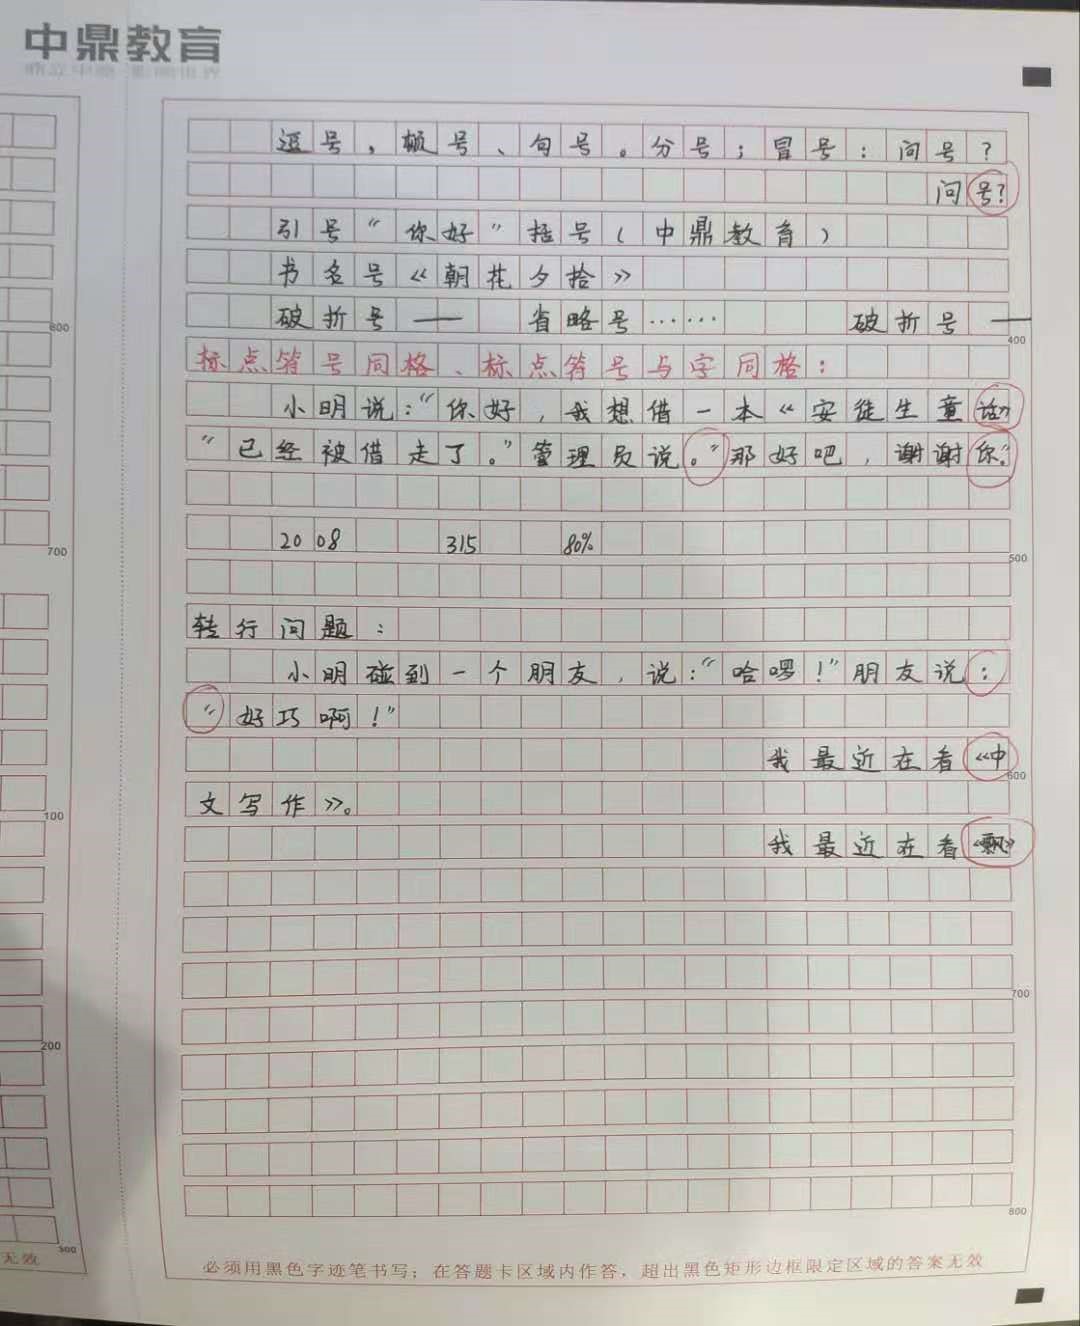 中鼎教育
逗号，顿号、句号。分号；冒号：问号？
问号？
引号“你好”括号（中鼎教育）
书名号《朝花夕拾》
破折号—— 省略号…… 破折号——
400
标点符号同格、标点符号与字同格：
小明说：“你好，我想借一本《安徒生童话》
“已经被借走了。”管理员说。”那好吧，谢谢你。”
2008 315 80%
500
转行问题：
小明碰到一个朋友，说：“哈啰！”朋友说：
“好巧啊！”
我最近在看《中
600
文写作》。
我最近在看《飘》
700
800
必须用黑色字迹笔书写；在答题卡区域内作答，超出黑色矩形边框限定区域的答案无效
600
700
100
200
300
无效